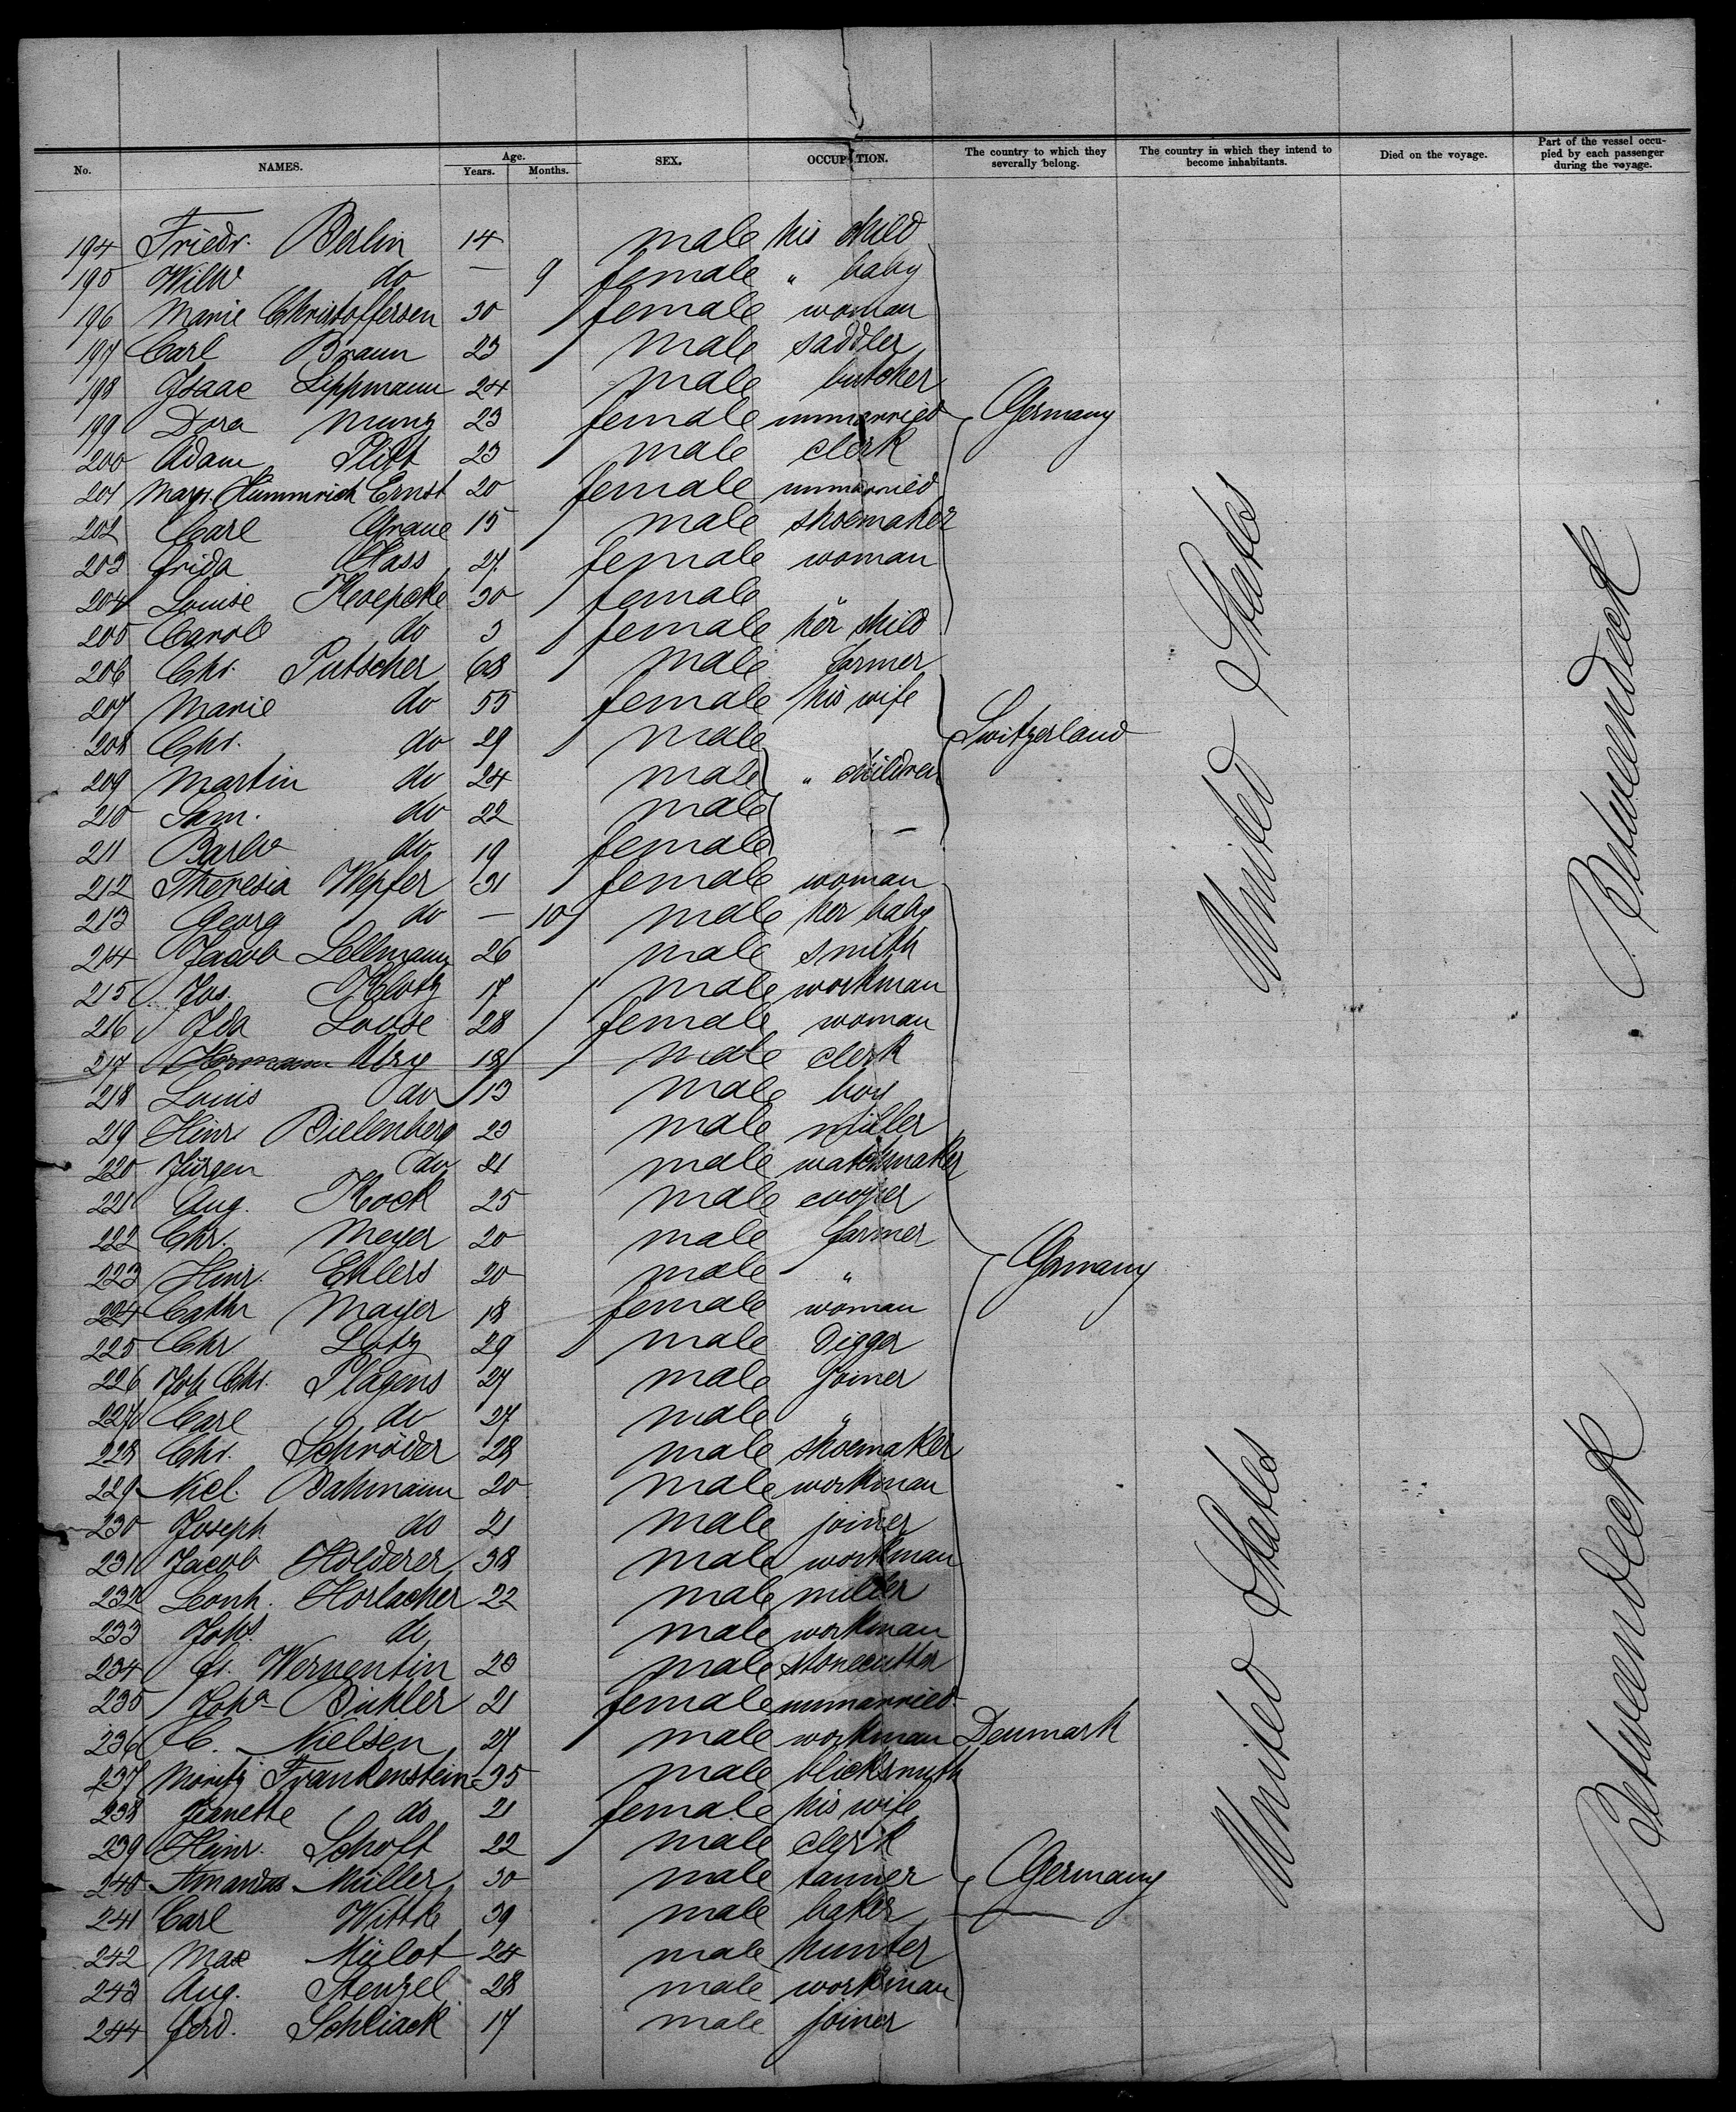 No. NAMES. Age. Years. Months. SEX. OCCUPATION. The country to which they severally belong. The country in which they intend to become inhabitants. Died on the voyage. Part of the vessel occupied by each passenger during the voyage.
194 Friedr. Berlin 14 male his child
195 Wilh do — 9 female " baby
196 Marie Christoffersen 30 female woman
197 Carl Braun 23 male saddler
198 Isaac Lippmann 24 male butcher
199 Dora Munz 23 female unmarried Germany
200 Adam Plitt 23 male clerk
201 Margr. Hummrich Ernst 20 female unmarried
202 Carl Graue 15 male shoemaker
203 Frida Class 27 female woman
204 Louise Koepcke 30 female "
205 Carol do 3 female her child
206 Chr. Putscher 68 male farmer
207 Marie do 55 female his wife
208 Chr. do 29 male Switzerland
209 Martin do 24 male " children
210 Sam. do 22 male
211 Barb. do 19 female —
212 Theresia Wepfer 31 female woman
213 Georg do — 10 male her baby
214 Jacob Lellmann 26 male smith
215 Jos. Klotz 17 male workman
216 Ida Louse 28 female woman
217 Hermann Ury 18 male clerk
218 Louis do 13 male boy
219 Hinr Bielenberg 23 male miller
220 Jürgen do 21 male watchmaker
221 Aug. Kock 25 male cooper
222 Chr. Meyer 20 male farmer
223 Hinr. Ehlers 20 male " Germany
224 Cathr Mayer 18 female woman
225 Chr Lotz 29 male digger
226 Joh Chr. Plagens 27 male joiner
227 Carl do 27 male "
228 Chr. Schröder 28 male shoemaker
229 Nicl. Bahmann 20 male workman
230 Joseph do 21 male joiner
231 Jacob Holderer 38 male workman
232 Leonh. Horlacher 22 male miller
233 Johs do male workman
234 Fr. Wernentin 23 male stonecutter
235 Joha Bühler 21 female unmarried
236 C. Nielsen 27 male workman Denmark
237 Moritz Frankenstein 35 male blicksmyth
238 Jeanette do 21 female his wife
239 Heinr. Schott 22 male clerk
240 Amandus Müller 30 male tanner Germany
241 Carl Wittke 39 male baker
242 Max Mülot 24 male hunter
243 Aug. Stenzel 28 male workman
244 Ferd. Schliack 17 male joiner
United States
Betweendeck
United States
Betweendeck